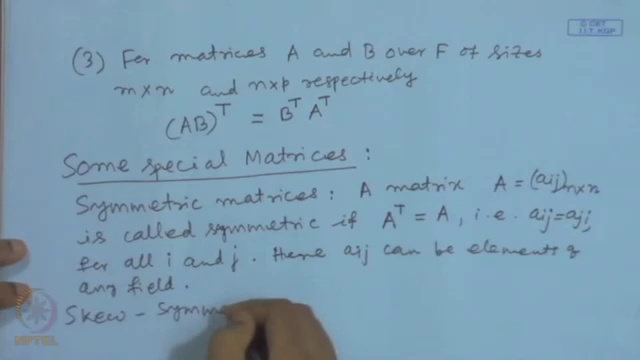 © CET
I.I.T. KGP
(3) For matrices A and B over F of sizes
m×n and n×p respectively
(AB)^T = B^T A^T
Some special Matrices :
Symmetric matrices : A matrix A = (aij)n×n
is called symmetric if A^T = A, i.e. aij = aji,
for all i and j. Here aij can be elements of
any field.
Skew - Symm
NPTEL